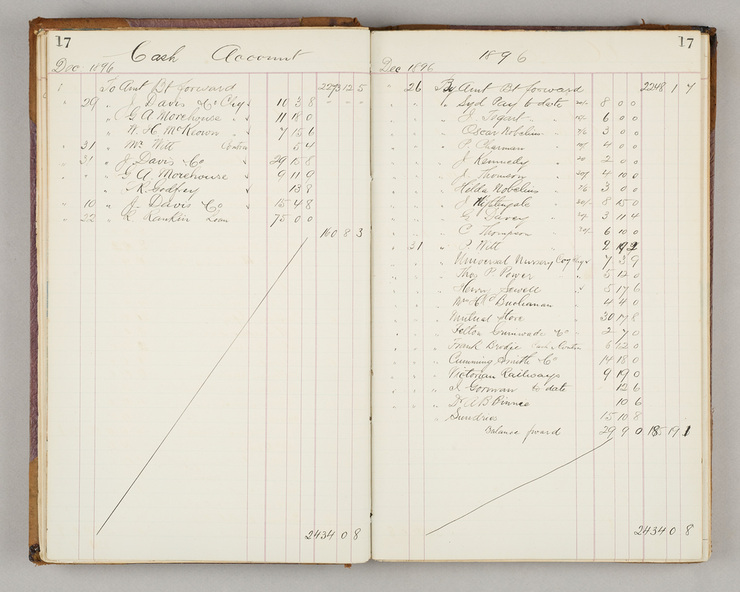 17
Cash Account
Dec 1896
To Amt Bt forward 2273 12 5
" 29 " J. Davis & Co 10 3 8
" G A Morehouse 11 18 0
" W. H. McKeown 7 15 6
" 31 " Mr Witt 5 4
" 31 " J Davis & Co 29 15 8
" " " G A Morehouse 9 11 9
" R Godfrey 13 8
" 10 " J Davis & Co 15 4 8
" 22 " R Rankin Loan 75 0 0
160 8 3
2434 0 8
17
1896
Dec 1896
" 26 By Amt Bt forward 2248 1 7
" Syd Pay to date 8 0 0
" 6 0 0
" Oscar Nobelius 3 0 0
" P. Chairman 4 0 0
" J. Kennedy 2 0 0
" J. Thomson 4 10 0
" Hilda Nobelius 3 0 0
" J Nightingale 8 15 0
" G. Davey 3 11 4
" C Thompson 6 10 0
" 31 " P. Witt 2 19
" Universal Nursery Co 7 3 9
" Thos P. Power 5 12 0
" Henry Sewell 5 17 6
" Buchanan 4 4 0
" Mutual Store 30 17 8
" Felton Grimwade & Co 2 7 0
" Frank Brodie 12 0
" Cumming Smith & Co 14 18 0
" Victorian Railways 9 19 0
" Gorman to date 12 6
" Dr A B 10 6
" Sundries 15 10 8
Balance forward 29 9 0 185 19 1
2434 0 8